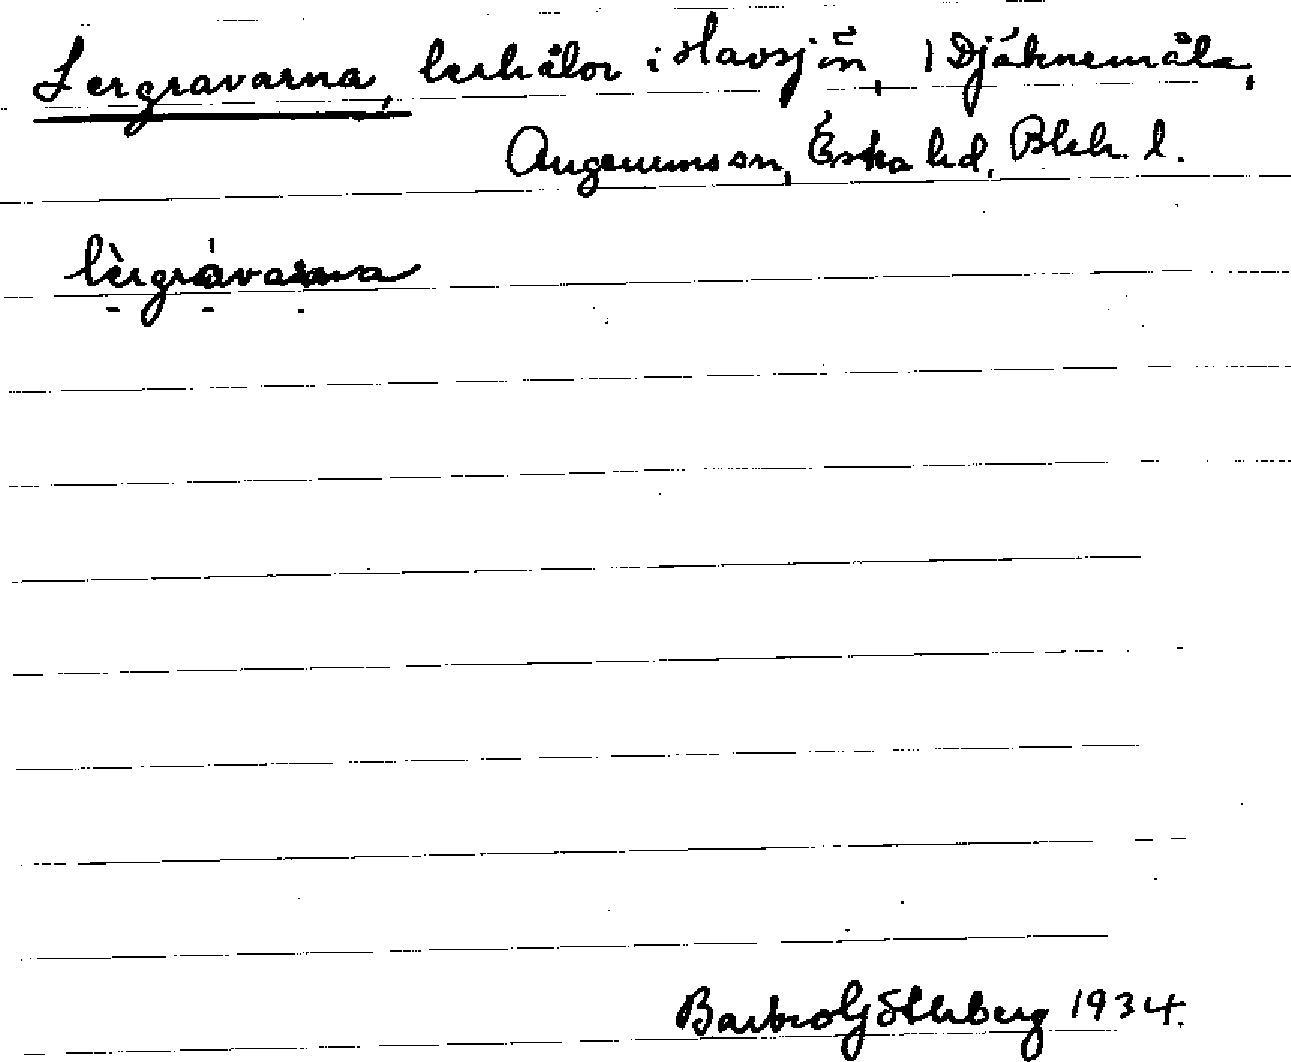 Lergravarna, lerhålor i Havsjön, 1 Djäknemåla,
Augerums sn, Östra hd, Blek. l.
lèrgrávarna
Barbro Götheberg 1934.